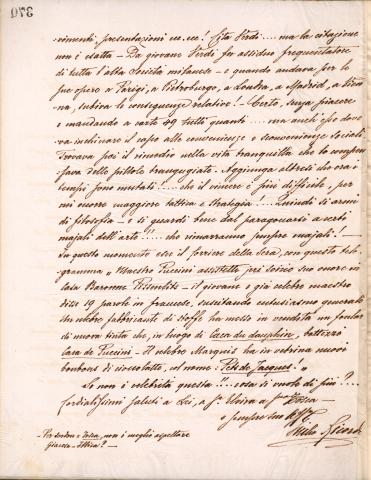 370
vimenti presentazioni ecc. ecc.! Cita Verdi.... ma la citazione
non è esatta - Da giovane Verdi fu assiduo frequentatore
di tutta l'alta Società milanese - e quando andava per le
sue opere a Parigi, a Pietroburgo, a Londra, a Madrid, a Vien
na, subiva le conseguenze relative! - Certo, senza piacere
e mandando a carte 49 tutti quanti.... ma anch'esso dove
va inchinare il capo alle convenienze e sconvenienze sociali
Trovava poi il rimedio nella vita tranquilla che lo compen
sava delle pillole trangugiate. Aggiunga altresì che ora i
tempi sono mutati!... che il vincere è più difficile, per
cui occorre maggiore tattica e strategia! - Quindi si armi
di filosofia - e si guardi bene dal paragonarsi a certi
majali dell'arte!!.... che rimarranno sempre majali! -
In questo momento esce il Corriere della Sera, con questo tele
gramma "Maestro Puccini assistette jeri soirée suo onore in
casa Baronne - il giovane e già celebre maestro
disse 19 parole in francese, suscitando entusiasmo generale
Un celebre fabbricante di stoffe ha messo in vendita un foulard
di nuova tinta che, in luogo di Caca du dauphin, battezzò
Caca de Puccini - Il celebre Marquis ha in vetrina nuovi
bonbons di cioccolatte, col nome: Pets de Jacques." -
Se non è celebrità questa!!.. cosa si vuole di più?....
Cordialissimi saluti a Lei, a Sa. Elvira a Sa. Tosca
e sempre suo aff.
Giulio Ricordi
- Per sentire Tosca, non è meglio aspettare